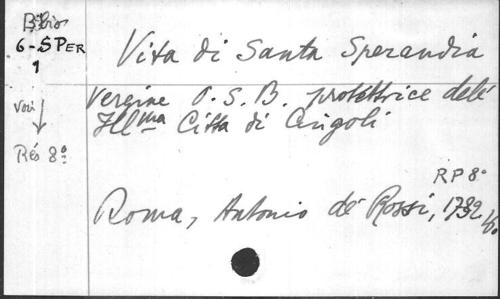 Biblio
6-SPER
1
Vita di Santa Sperandia
Vergine O.S.B. protettrice dell'
Ill ma Citta di Cingoli
voir
Rés 8º
RP 8º
Roma, Antonio de' Rossi, 1732,